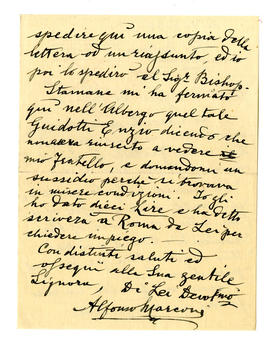 spedire qui una copia della
lettera od un riassunto, ed io
poi lo spedirò al Sigr Bishop.
Stamane mi ha fermato
qui nell'Albergo quel tale
Guidotti Enzio dicendo che
non era riuscito a vedere il
mio fratello, e domandomi un
sussidio perchè si trovava
in misere condizioni. Io gli
ho dato dieci Lire e ha detto
scriverà a Roma da Lei per
chiedere impiego.
Con distinti saluti ed
ossequi alla Sua gentile
Signora, Di Lei Devotmo
Alfonso Marconi